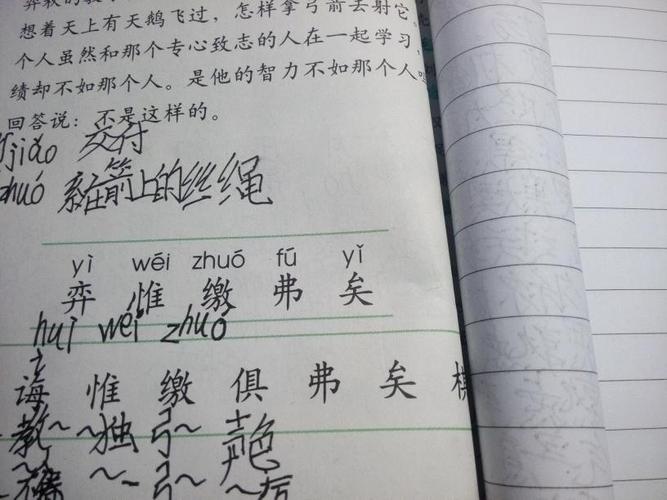 想着天上有天鹅飞过，怎样拿弓箭去射它。
个人虽然和那个专心致志的人在一起学习，
绩却不如那个人。是他的智力不如那个人吗
回答说：不是这样的。
jiǎo 交付
zhuó 系在箭上的丝绳
yì wéi zhuó fú yǐ
弈 惟 缴 弗 矣
huì wéi zhuó
诲 惟 缴 俱 弗 矣
教～ ～独 弓～ 声色
～ ～ ～厉